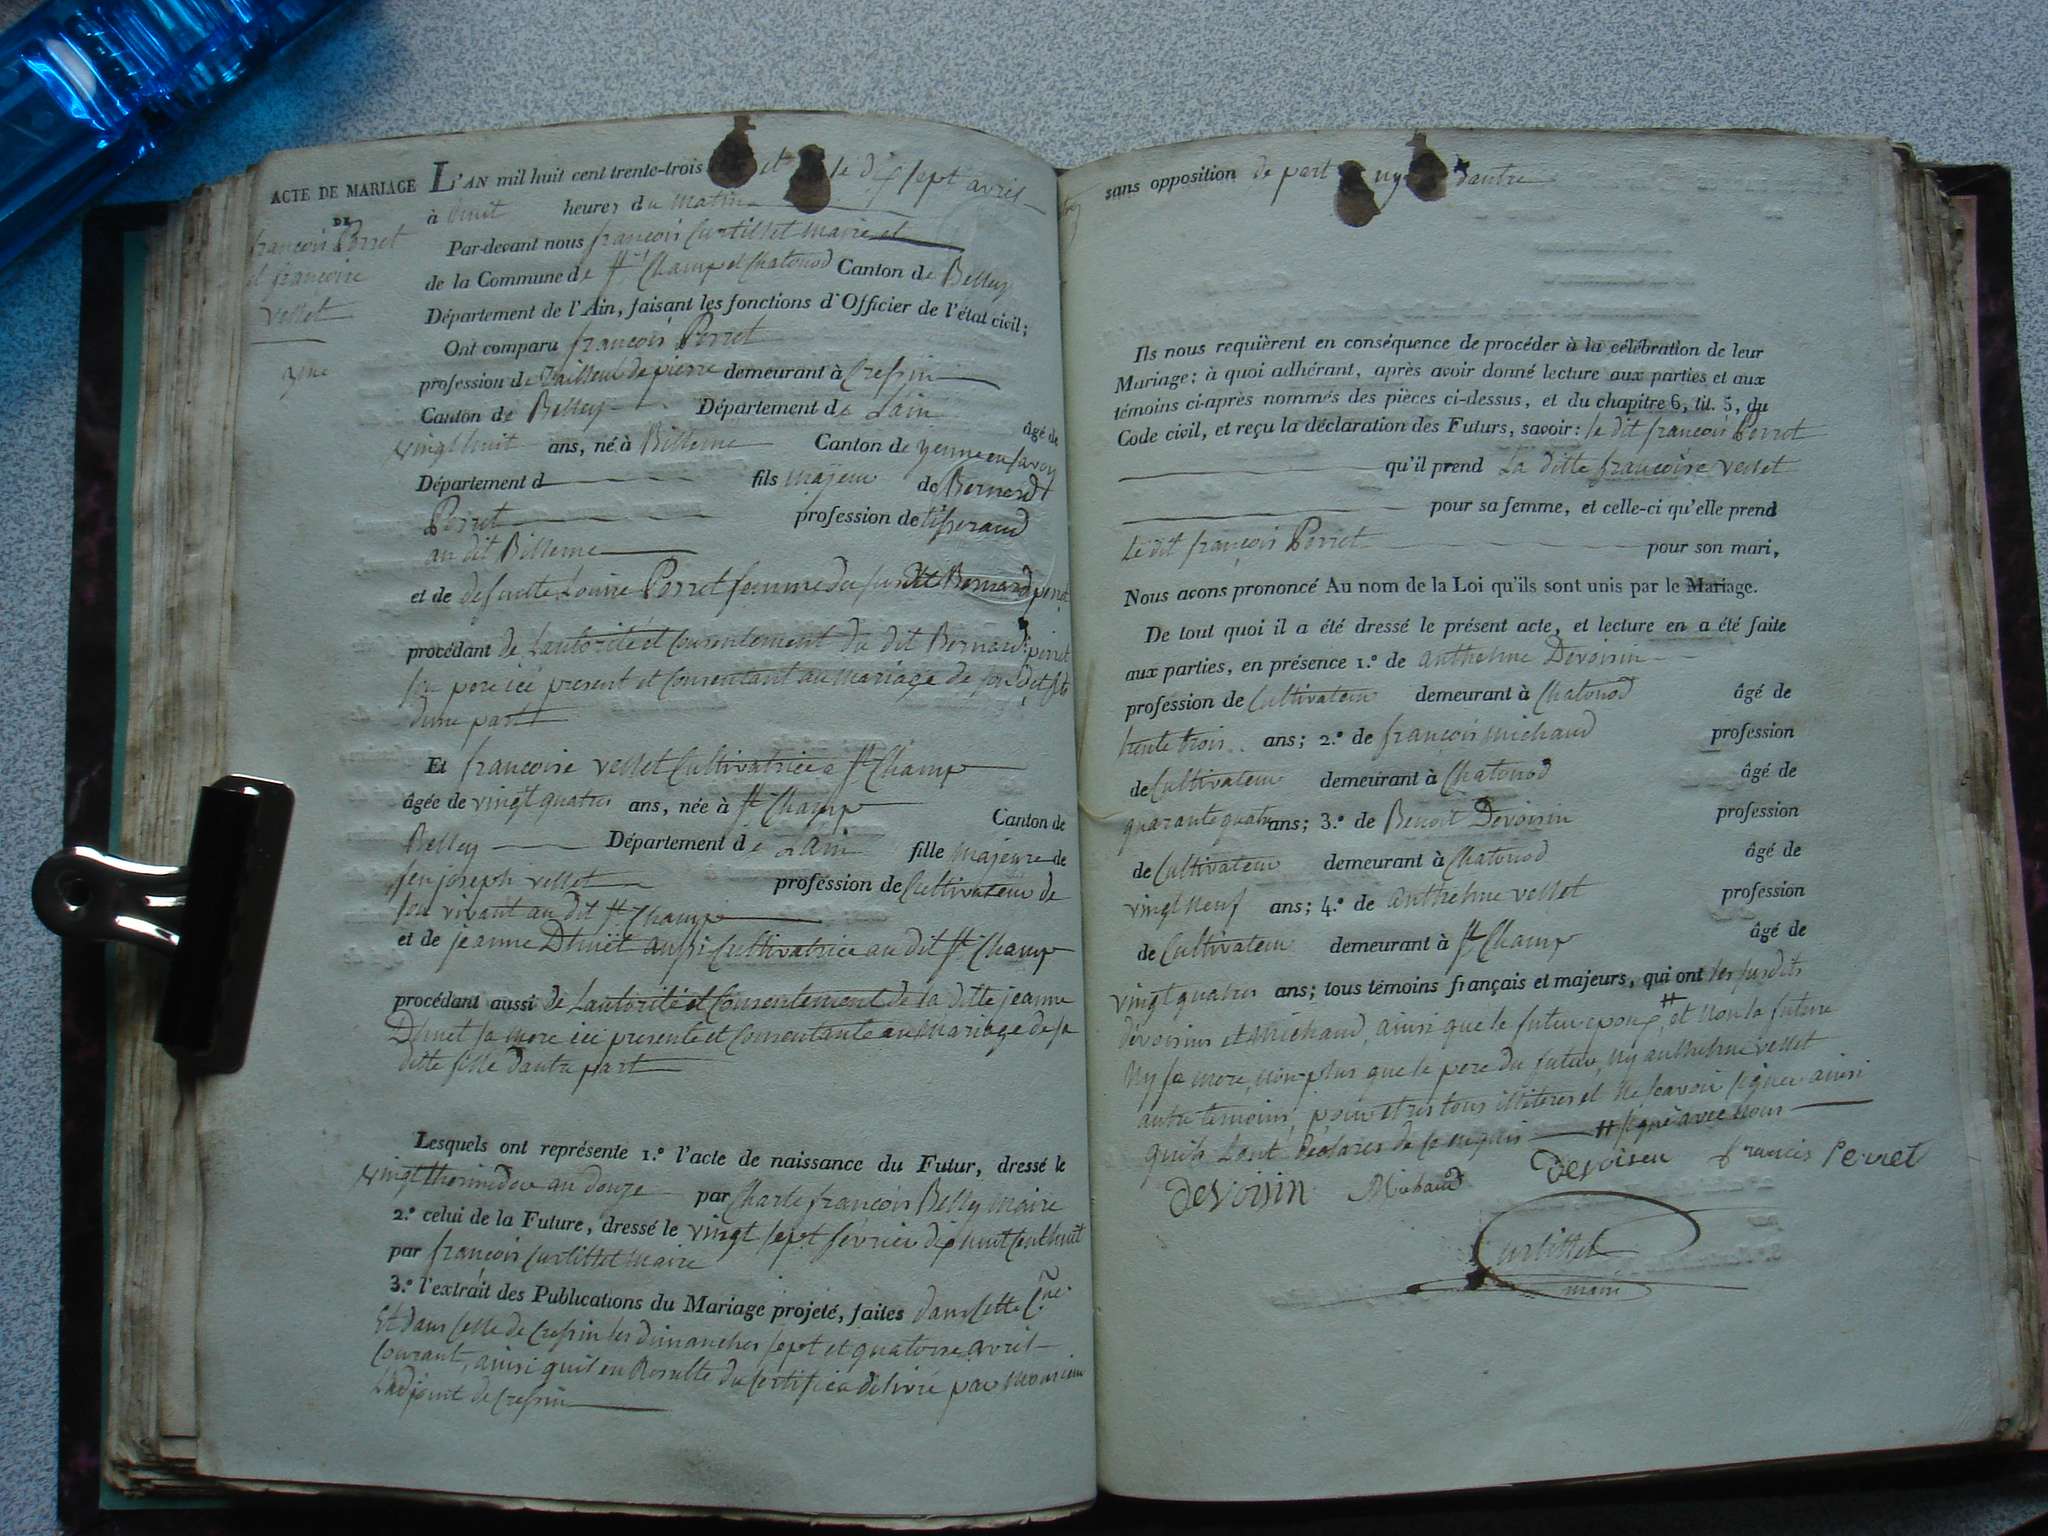 ACTE DE MARIAGE
DE
françois Perret
et françoise
vellet
L'AN mil huit cent trente-trois et le dix sept avril
à huit heures du matin
Par-devant nous françois Curtillet maire
de la Commune de St Champ et Chatonod Canton de Belley
Département de l'Ain, faisant les fonctions d'Officier de l'état civil;
Ont comparu françois Perret
profession de Tailleur de pierre demeurant à Cressin
Canton de Belley Département de Lain âgé de
vingt huit ans, né à Billieme Canton de yenne en savoy
Département d fils majeur de Bernard
Perret profession de tisserand
au dit Billieme
et de deffuntte Louise Perret femme du susdit Bernard perret
procédant de Lautorité et Consentement du dit Bernard perret
son pere ici present et Consentant au mariage de son dit fils
dune part
Et françoise vellet Cultivatrice a St Champ
âgée de vingt quatre ans, née à St Champ Canton de
Belley Département de Lain fille majeure de
feu joseph vellet profession de Cultivateur de
son vivant au dit St Champ
et de jeanne Dhuet aussi Cultivatrice au dit St Champ
procédant aussi de Lautorité et Consentement de la ditte jeanne
Dhuet sa mere ici presente et Consentante au Mariage de sa
ditte fille dautre part
Lesquels ont représente 1.º l'acte de naissance du Futur, dressé le
vingt thermidor an douze par Charle françois Belly maire
2.º celui de la Future, dressé le vingt sept février dix huit cent huit
par françois Curtillet maire
3.º l'extrait des Publications du Mariage projeté, faites dans cette Cne
Et dans Celle de Cressin les dimanches sept et quatorze avril
Courant, ainsi quil en Resulte du Certificat délivré par monsieur
Ladjoint de Cressin
sans opposition de part ny dautre
Ils nous requièrent en conséquence de procéder à la célébration de leur
Mariage; à quoi adhérant, après avoir donné lecture aux parties et aux
témoins ci-après nommés des pièces ci-dessus, et du chapitre 6, tit. 5, du
Code civil, et reçu la déclaration des Futurs, savoir: le dit françois Perret
qu'il prend La ditte françoise vellet
pour sa femme, et celle-ci qu'elle prend
Le dit françois Perret pour son mari,
Nous avons prononcé Au nom de la Loi qu'ils sont unis par le Mariage.
De tout quoi il a été dressé le présent acte, et lecture en a été faite
aux parties, en présence 1.º de anthelme Devoisin
profession de Cultivateur demeurant à Chatonod âgé de
trente trois ans; 2.º de françois michaud profession
de Cultivateur demeurant à Chatonod âgé de
quarante quatre ans; 3.º de Benoit Devoisin profession
de Cultivateur demeurant à Chatonod âgé de
vingt neuf ans; 4.º de anthelme vellet profession
de Cultivateur demeurant à St Champ âgé de
vingt quatre ans; tous témoins français et majeurs, qui ont les susdits
devoisins et Michaud, ainsi que le futur epoux, # et non la future
Ny sa mere, non plus que le pere du futur, Ny anthelme vellet
autre temoins, pour etres tous illiteres et Ne scavoir signer ainsi
quils Lont déclarés de ce enquis # signé avec nous
devoisin Michaud devoisin francois Perret
Curtillet
maire